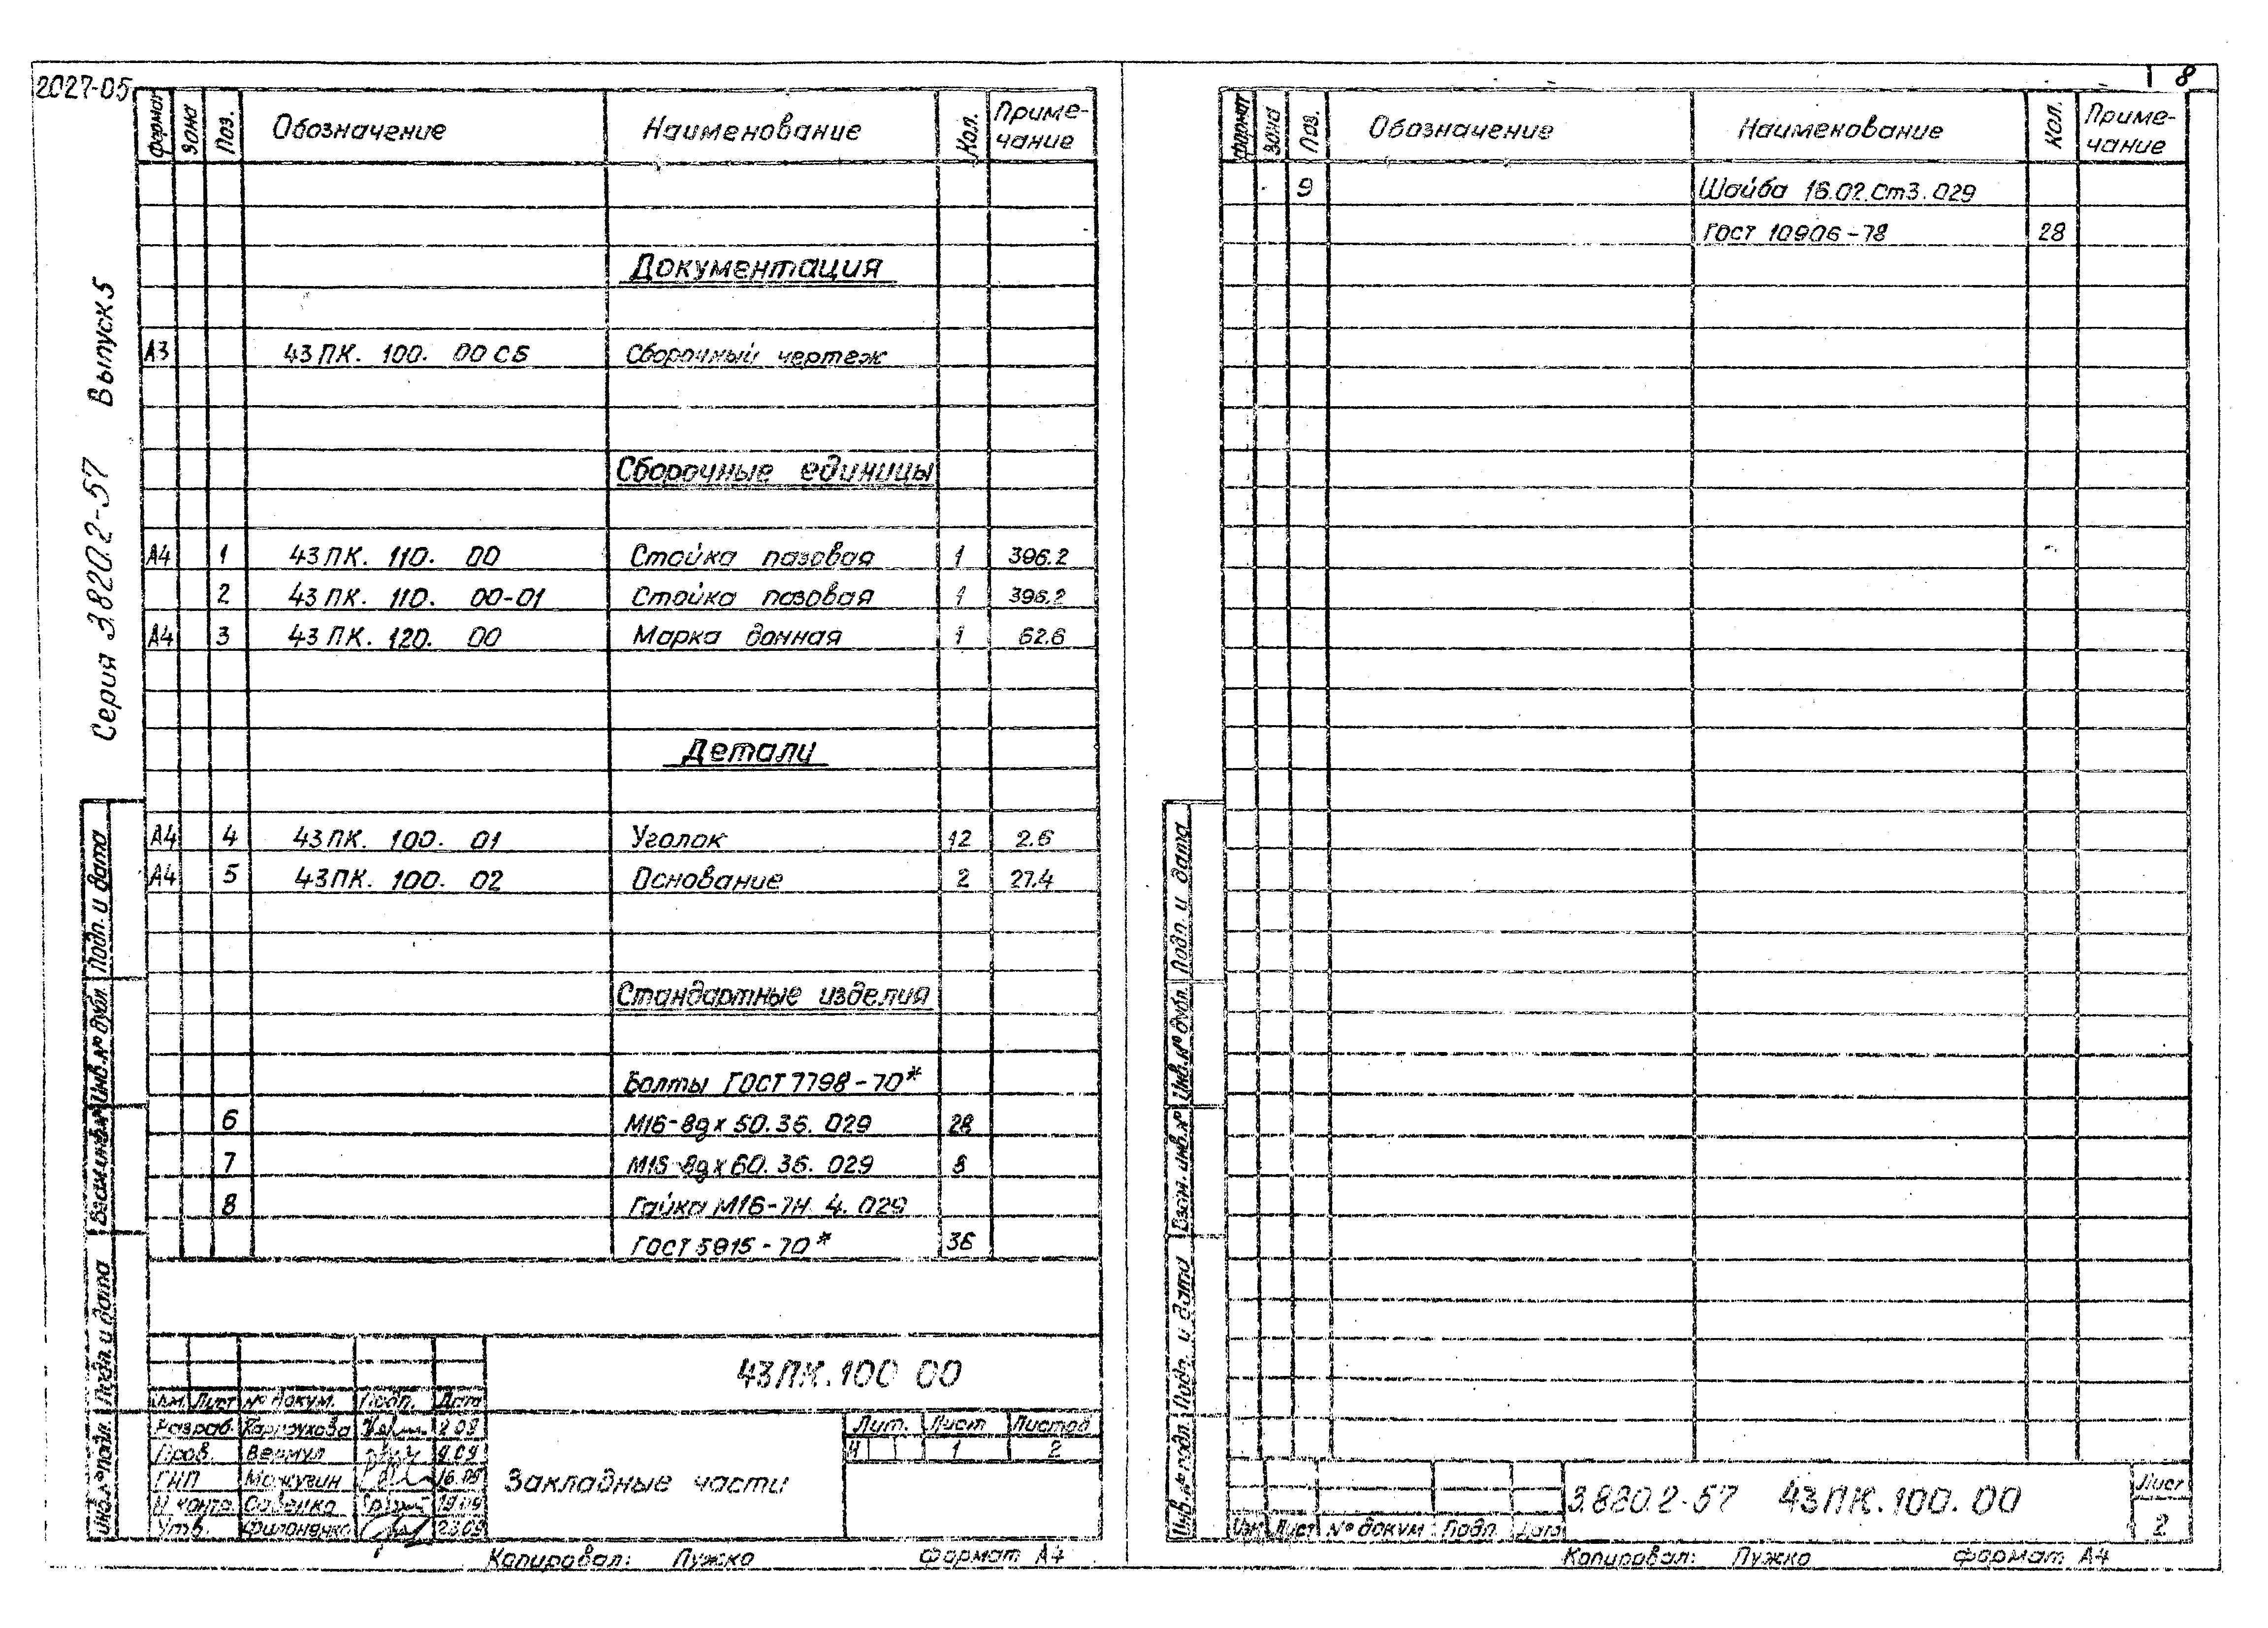 2027-05
8
Серия 3.820.2-57 Выпуск 5
Формат Зона Поз. Обозначение Наименование Кол. Приме-
чание
Документация
А3 43ПК. 100. 00 СБ Сборочный чертеж
Сборочные единицы
А4 1 43ПК. 110. 00 Стойка пазовая 1 396.2
2 43ПК. 110. 00-01 Стойка пазовая 1 396.2
А4 3 43ПК. 120. 00 Марка донная 1 62.6
Детали
А4 4 43ПК. 100. 01 Уголок 12 2.6
А4 5 43ПК. 100. 02 Основание 2 27.4
Стандартные изделия
Болты ГОСТ 7798-70*
6 М16-8gх50.36. 029 28
7 М16-8gх60.36. 029 8
8 Гайка М16-7Н. 4. 029
ГОСТ 5915-70* 36
43ПК.100 00
Изм. Лист № докум. Подп. Дата
Разраб.
Пров. Вермул
ГИП
Н.конт. Савенко
Утв.
Закладные части
Лит. Лист Листов
И 1 2
Копировал: Пужко Формат А4
Инв.№ подл. Подп. и дата Взам.инв.№ Инв.№ дубл. Подп. и дата
Формат Зона Поз. Обозначение Наименование Кол. Приме-
чание
9 Шайба 16.02.Ст3.029
Гост 10906-78 28
Инв.№ подл. Подп. и дата Взам. инв.№ Инв.№ дубл. Подп. и дата
Изм Лист № докум. Подп. Дата
3.820.2-57 43ПК.100.00
Лист
2
Копировал: Пужко Формат А4